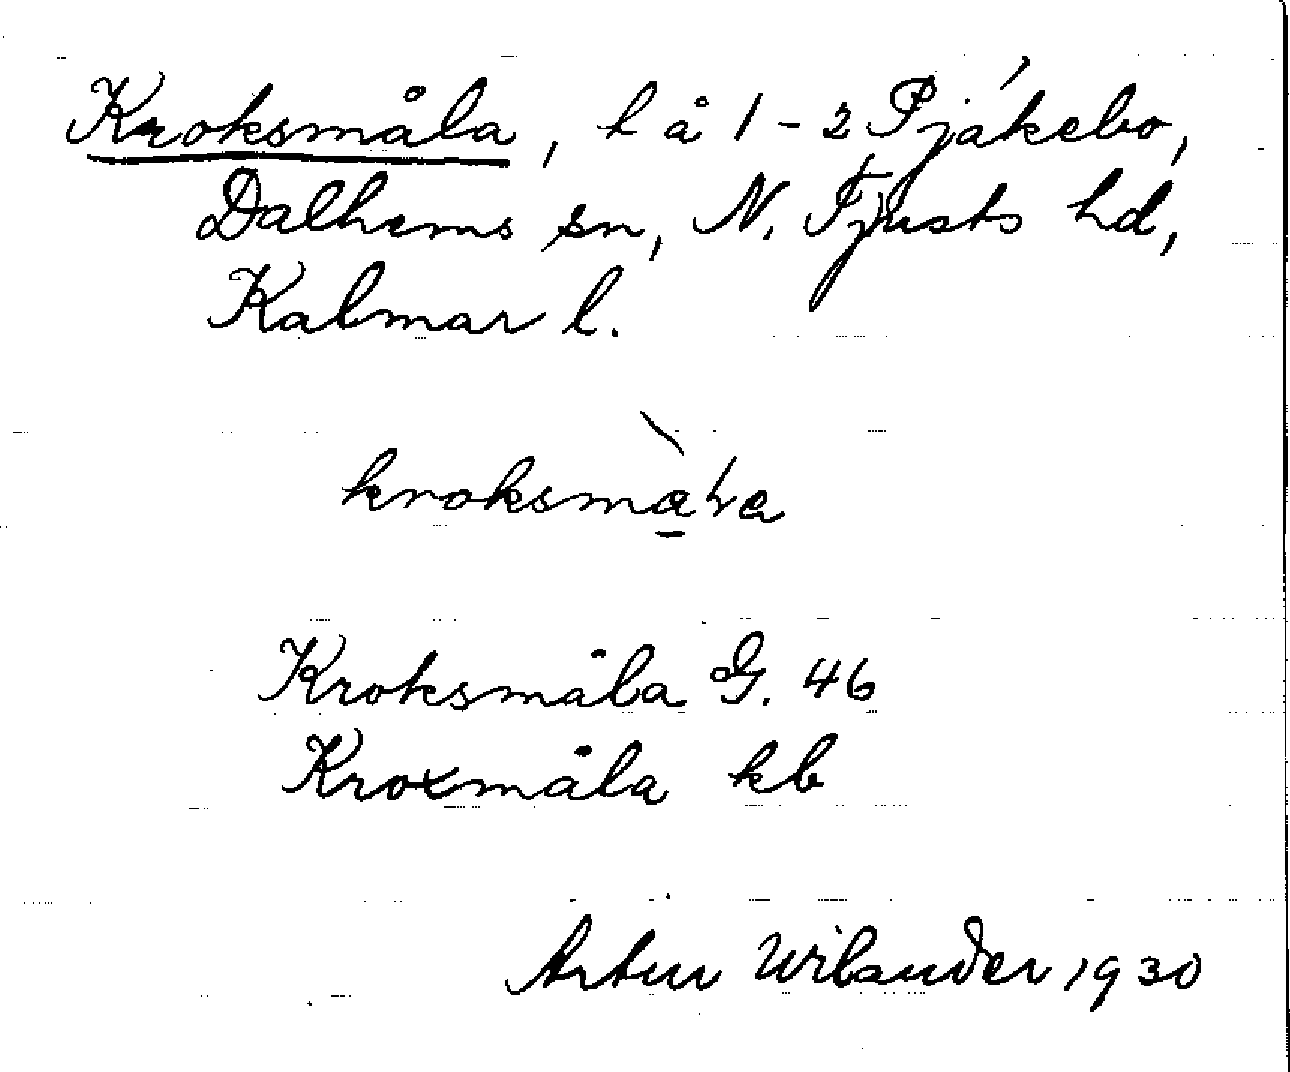 Kroksmåla, l å 1-2 Pjákebo,
Dalhems sn, N. Tjusts hd,
Kalmar l.
Kroksmåla G. 46
Kroxmåla kb
Artur Wilander 1930